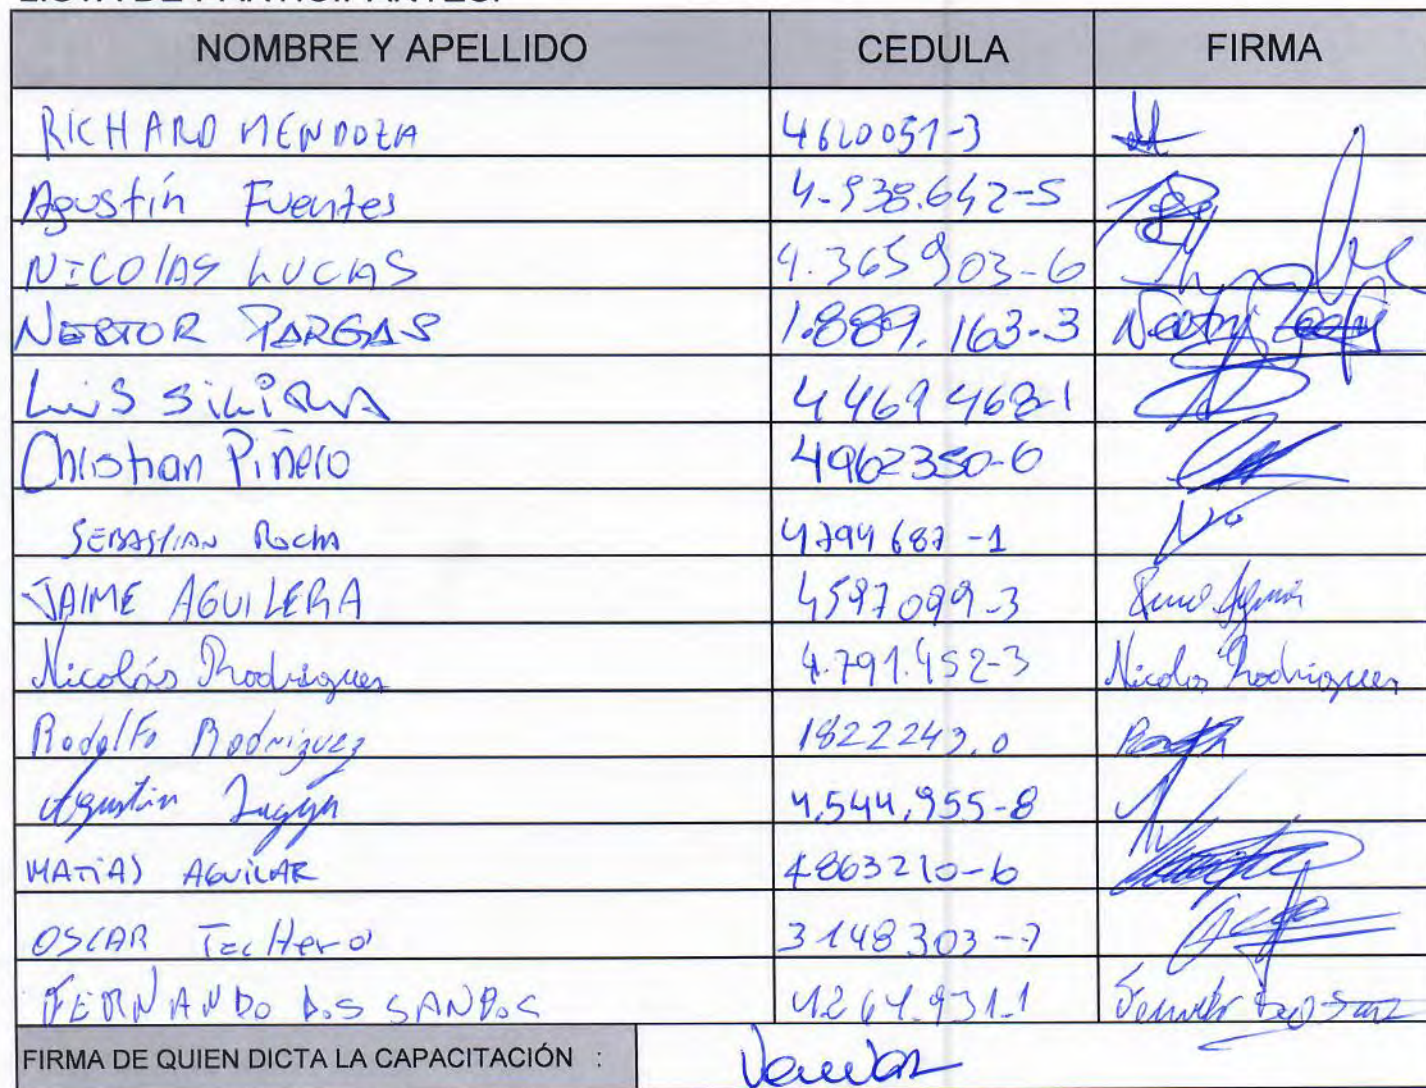 LISTA DE PARTICIPANTES:
NOMBRE Y APELLIDO CEDULA FIRMA
RICHARD MENDOZA 4620051-3
Agustín Fuentes 4.938.642-5
NICOlAS LUCAS 4.365903-6
NESTOR PARGAS 1.889.163-3 Nestor
Luis SiLiRA 4461468-1
Christian Piñeiro 4962350-6
SEBASTIAN Rocha 4794687-1
JAIME AGUILERA 4597099-3
Nicolás Rodriguez 4.791.452-3 Nicolas Rodriguez
Rodolfo Rodriguez 1822243.0
Agustin 4.544.955-8
MATíAS AGUiLAR 4863210-6
OSCAR TecHero 3148303-7
FERNANDO DOS SANTOS 4264.931.1
FIRMA DE QUIEN DICTA LA CAPACITACIÓN :